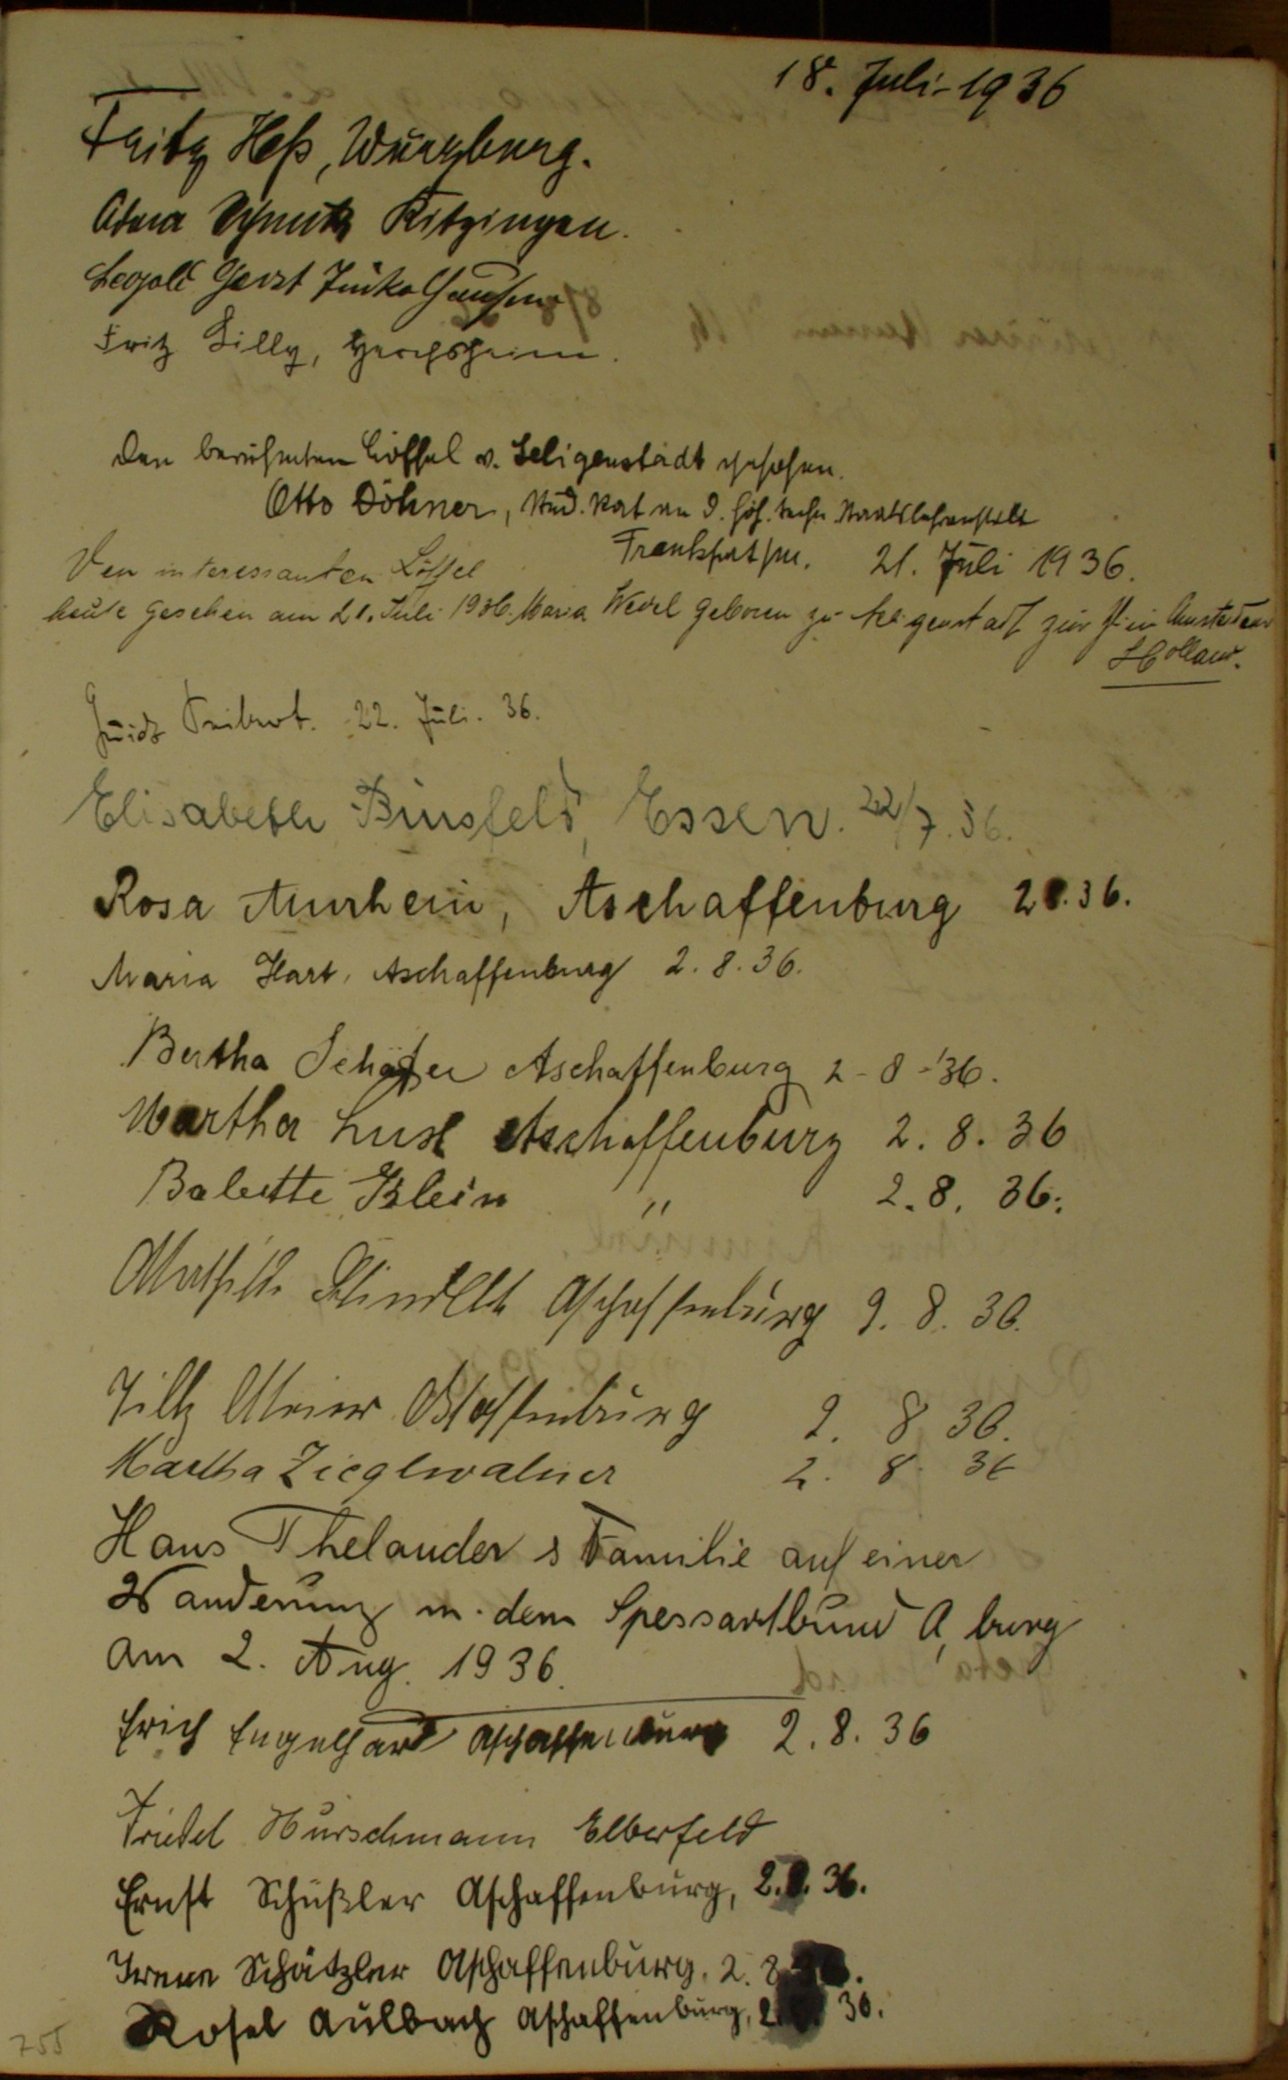 18. Juli 1936
Fritz Heß, Würzburg.
Kitzingen.
Leopold Gerst
Fritz Lilly, Herchsheim.
Den berühmten Löffel v. Seligenstadt gesehen.
Otto Döhner, Stud. an d. höh. techn. Staatslehranstalt
Frankfurt/M. 21. Juli 1936.
Den interessanten Löffel
heute gesehen am 21. Juli 1936. Maria Wedel geboren zu Seligenstadt zur Zt in Amsterdam
Holland.
22. Juli. 36.
Elisabeth Binsfeld, Essen. 22/7.36.
Rosa Aschaffenburg 2 8. 36.
Maria Hart, Aschaffenburg 2. 8. 36.
Bertha Schäfer Aschaffenburg 2-8-'36.
Martha Lust Aschaffenburg 2. 8. 36
Babette Klein " 2. 8. 36.
Mathilde Aschaffenburg 2. 8. 36.
Tilly Meier Aschaffenburg 2. 8 36.
Martha 2. 8. 36
Hans Thelander s Familie auf einer
Wanderung m. dem Spessartbund A'burg
am 2. Aug. 1936.
Erich Engelhard Aschaffenburg 2. 8. 36
Friedel Hürschmann Elberfeld
Ernst Schüßler Aschaffenburg, 2. 8. 36.
Irene Schätzler Aschaffenburg. 2. 8
Rosel Aulbach Aschaffenburg, 2. 36.
755